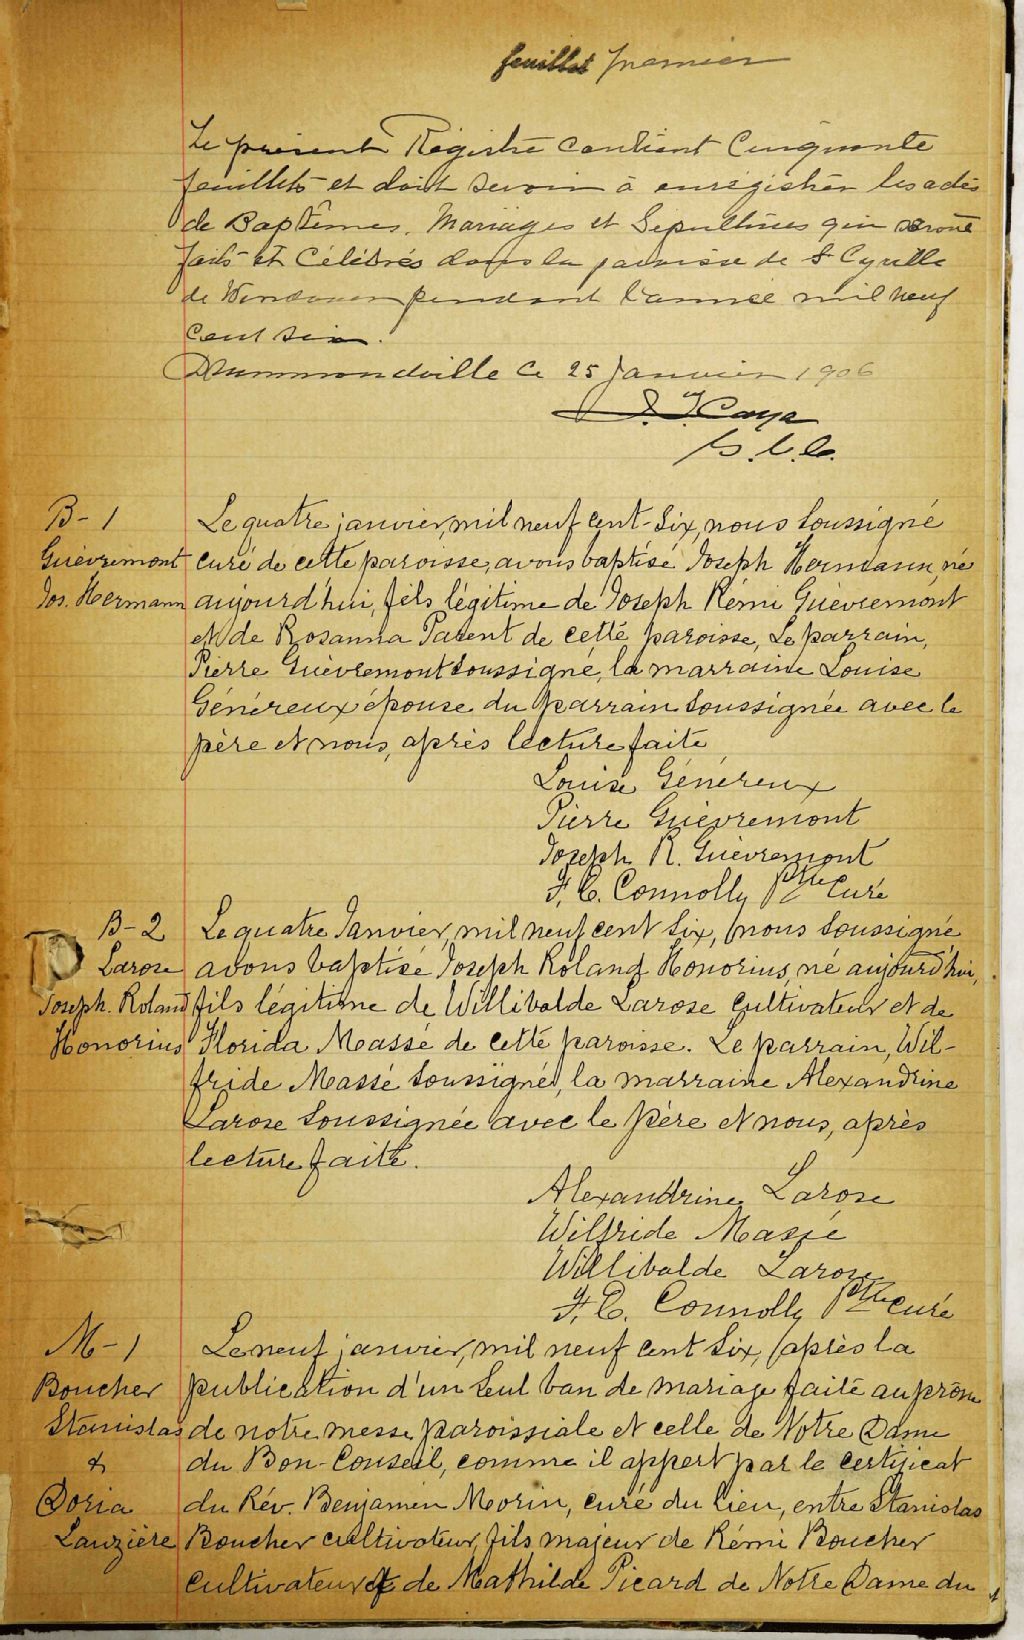 feuillet premier
Le présent Régistre contient Cinquante
feuillets et doit servir à enrégistrer les actes
de Baptêmes, Mariages et Sépultures qui seront
faits et Célébrés dans la paroisse de St Cyrille
de Wendover pendant l'année mil neuf
cent six.
Drummondville ce 25 Janvier 1906
J. Caya
B-1
Guèvremont
Jos. Hermann
Le quatre janvier, mil neuf cent-six, nous soussigné
curé de cette paroisse, avons baptisé Joseph Hermann, né
aujourd'hui, fils légitime de Joseph Rémi Guèvremont
et de Rosanna Parent de cette paroisse, Le parrain,
Pierre Guèvremont soussigné, la marraine Louise
Généreux épouse du parrain soussignée avec le
père et nous, après lecture faite
Louise Généreux
Pierre Guèvremont
Joseph R. Guèvremont
F. C. Connolly Ptre Curé
B-2
Larose
Joseph. Roland
Honorius
Le quatre Janvier, mil neuf cent six, nous soussigné
avons baptisé Joseph Roland Honorius, né aujourd'hui,
fils légitime de Willibalde Larose cultivateur et de
Florida Massé de cette paroisse. Le parrain, Wil-
fride Massé soussigné, la marraine Alexandrine
Larose soussignée avec le père et nous, après
lecture faite.
Alexandrine Larose
Wilfride Massé
Willibalde Larose
F. C. Connolly Ptre curé
M-1
Boucher
Stanislas
&
Doria
Lauzière
Le neuf janvier, mil neuf cent six, après la
publication d'un seul ban de mariage faite au prône
de notre messe paroissiale et celle de Notre Dame
du Bon-Conseil, comme il appert par le certificat
du Rév. Benjamin Morin, curé du lieu, entre Stanislas
Boucher cultivateur, fils majeur de Rémi Boucher
cultivateur et de Mathilde Picard de Notre Dame du